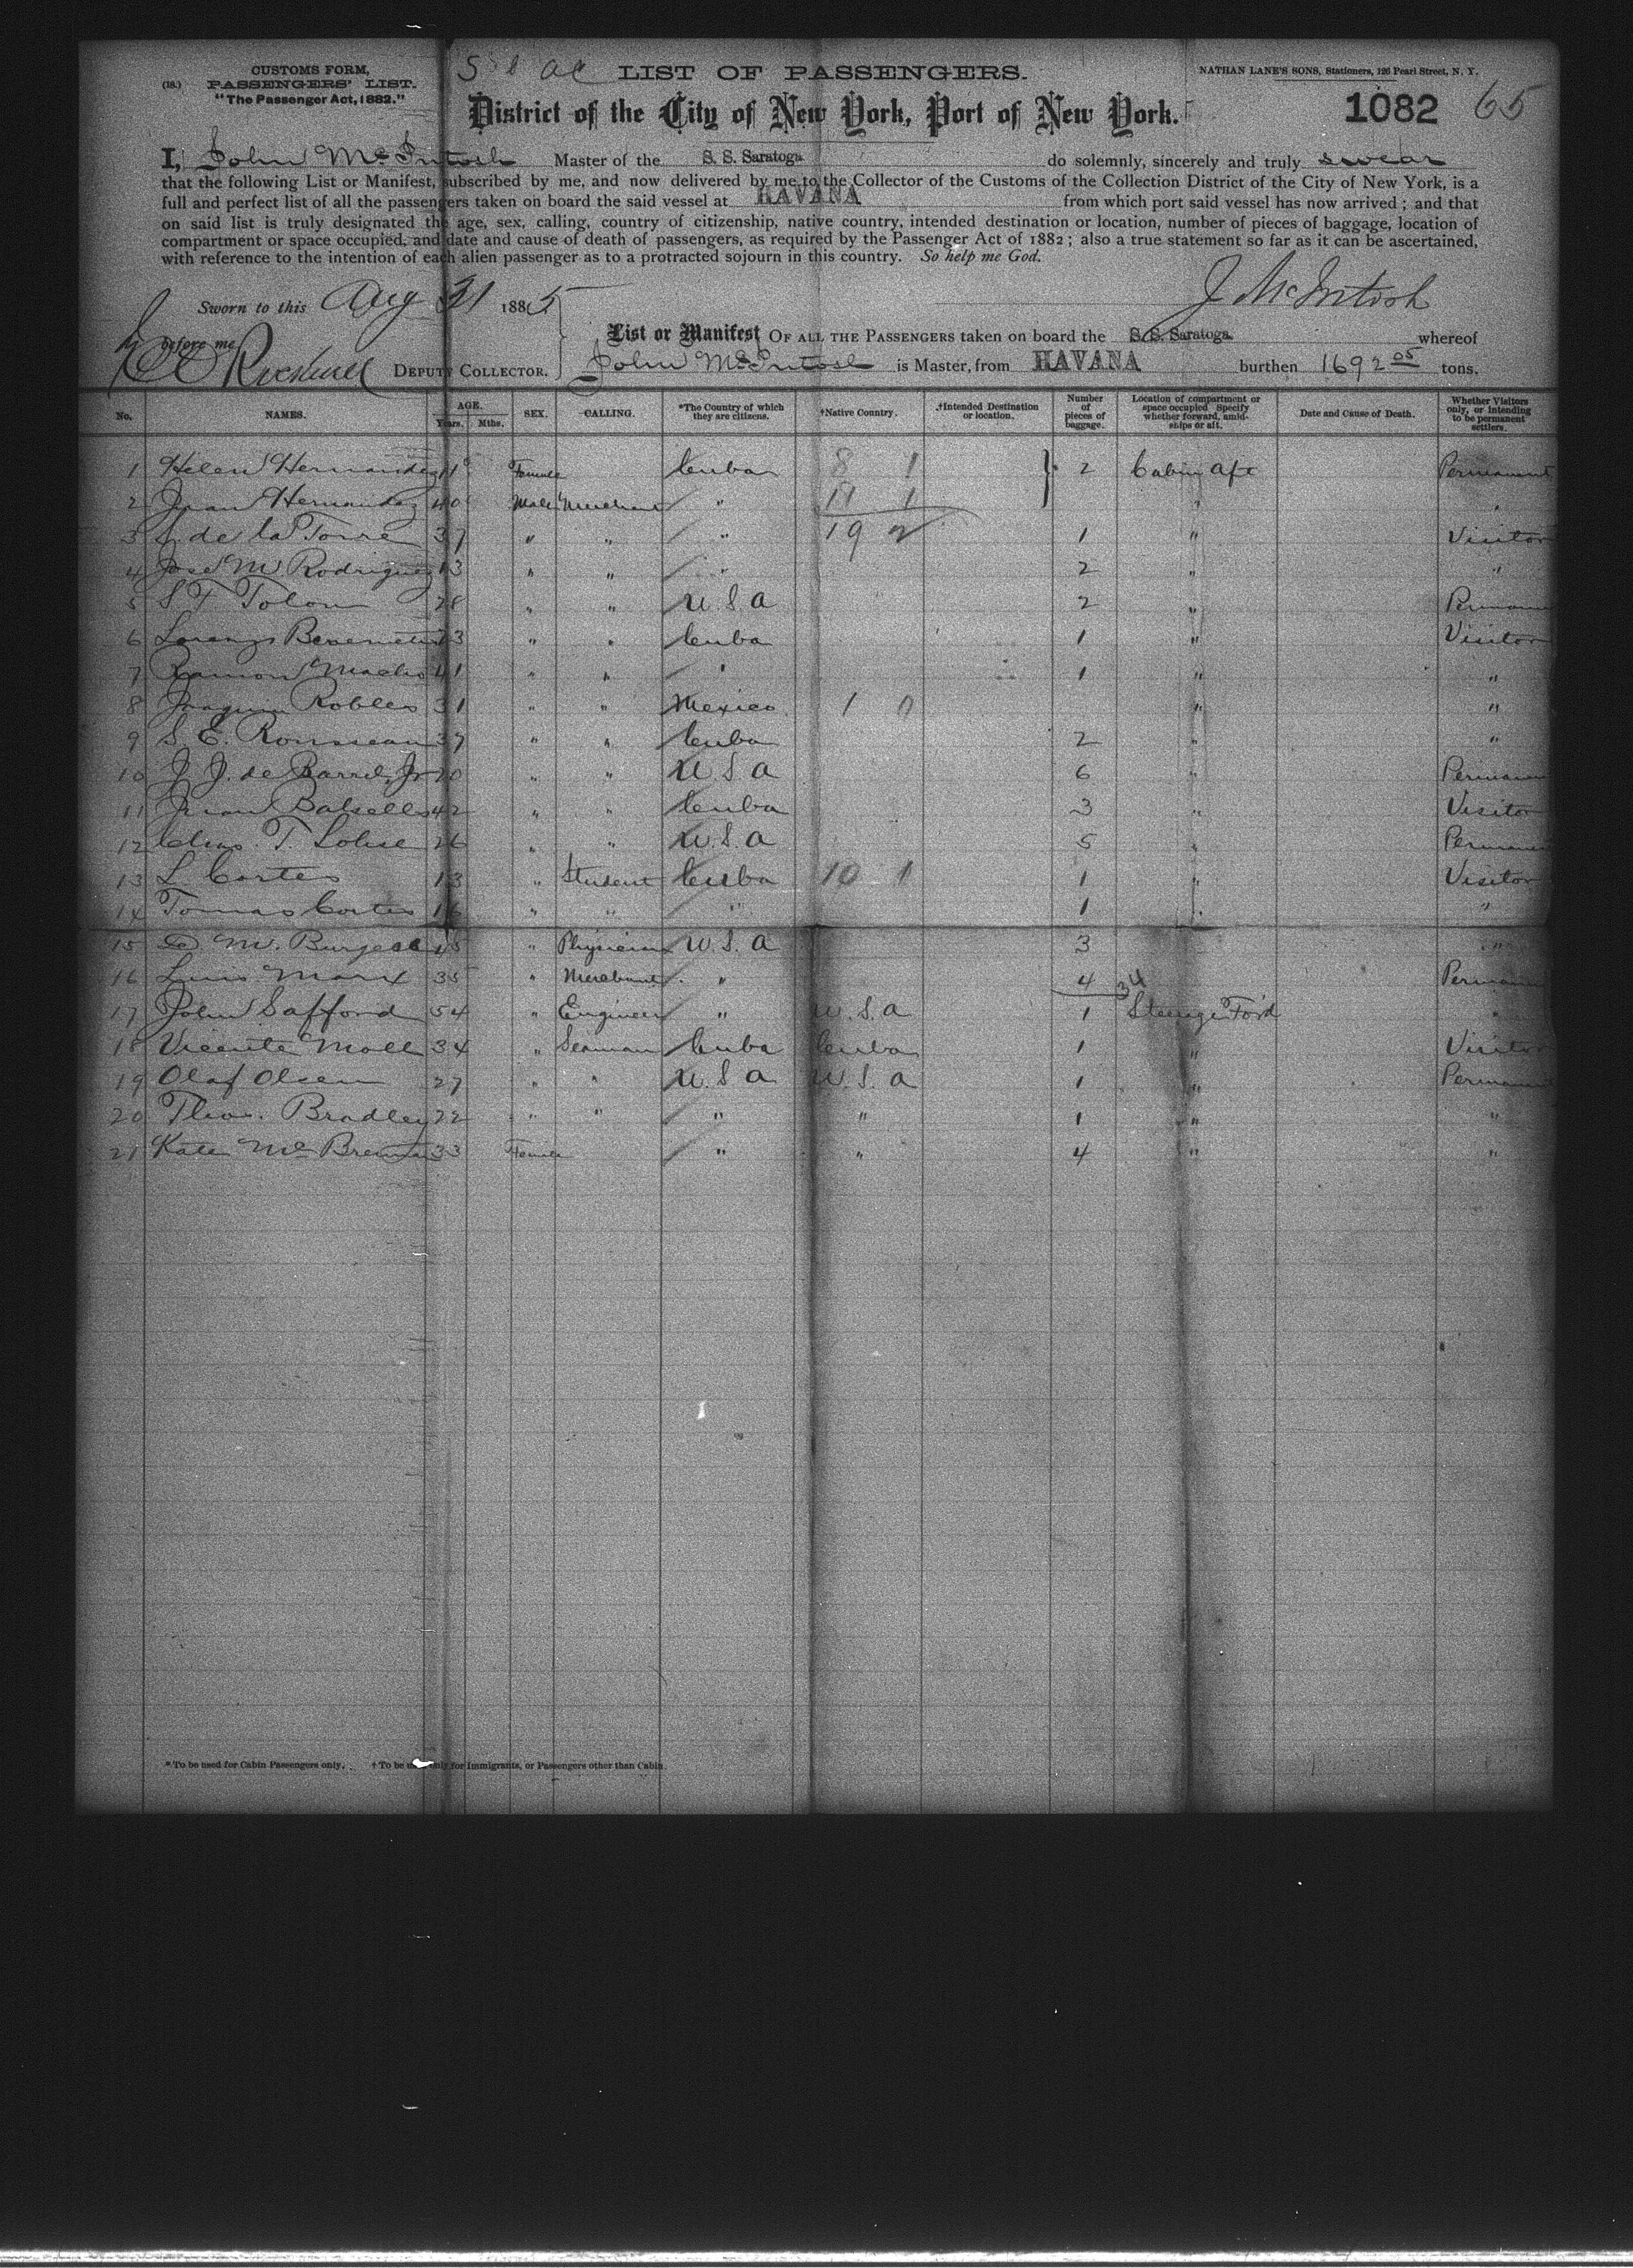 CUSTOMS FORM,
(18.) PASSENGERS' LIST.
"The Passenger Act, 1882."
LIST OF PASSENGERS.
NATHAN LANE'S SONS, Stationers, 126 Pearl Street, N. Y.
District of the City of New York, Port of New York.
1082 65
I, John McIntosh Master of the S. S. Saratoga do solemnly, sincerely and truly swear
that the following List or Manifest, subscribed by me, and now delivered by me to the Collector of the Customs of the Collection District of the City of New York, is a
full and perfect list of all the passengers taken on board the said vessel at HAVANA from which port said vessel has now arrived ; and that
on said list is truly designated the age, sex, calling, country of citizenship, native country, intended destination or location, number of pieces of baggage, location of
compartment or space occupied, and date and cause of death of passengers, as required by the Passenger Act of 1882 ; also a true statement so far as it can be ascertained,
with reference to the intention of each alien passenger as to a protracted sojourn in this country. So help me God.
J McIntosh
Sworn to this Aug 31 1885
before me
DEPUTY COLLECTOR.
List or Manifest OF ALL THE PASSENGERS taken on board the S. S. Saratoga whereof
John McIntosh is Master, from HAVANA burthen 1692 05 tons.
No. NAMES. AGE. Years. Mths. SEX. CALLING. *The Country of which they are citizens. †Native Country. †Intended Destination or location. Number of pieces of baggage. Location of compartment or space occupied Specify whether forward, amidships or aft. Date and Cause of Death. Whether Visitors only, or intending to be permanent settlers.
1 Helen Hernandez Female Cuba 8 1 2 Cabin aft Permanent
2 Juan Hernandez 40 Male Merchant " 11 1 " "
3 de la Torre 37 " " " 19 2 1 " Visitor
4 Jose M. Rodriguez " " " 2 " "
5 S T Tolon 28 " " U.S.A 2 " Permanent
6 Lorenzo 3 " " Cuba 1 " Visitor
7 Ramon Macho 41 " " " 1 " "
8 Joaquin Robles 31 " " Mexico 1 0 " "
9 S. E. Rousseau 37 " " Cuba 2 " "
10 J. J. de Barril, Jr 20 " " U.S.A 6 " Permanent
11 Juan Balsells 42 " " Cuba 3 " Visitor
12 Chas. T. Lohse 26 " " U.S.A 5 " Permanent
13 L Cortes 13 " Student Cuba 10 1 1 " Visitor
14 Tomas Cortes 16 " " " 1 " "
15 D. M. Burgess 45 " Physician U.S.A 3 "
16 Luis Marx 35 " Merchant " 4 34 Permanent
17 John Safford 54 " Engineer " U.S.A 1 Steerage For'd "
18 Vicente Moll 34 " Seaman Cuba Cuba 1 " Visitor
19 Olaf Olsen 27 " " U.S.A U.S.A 1 " Permanent
20 Thos. Bradley 22 " " " " 1 " "
21 Kate Mc 33 Female " " 4 " "
* To be used for Cabin Passengers only. † To be used only for Immigrants, or Passengers other than Cabin.